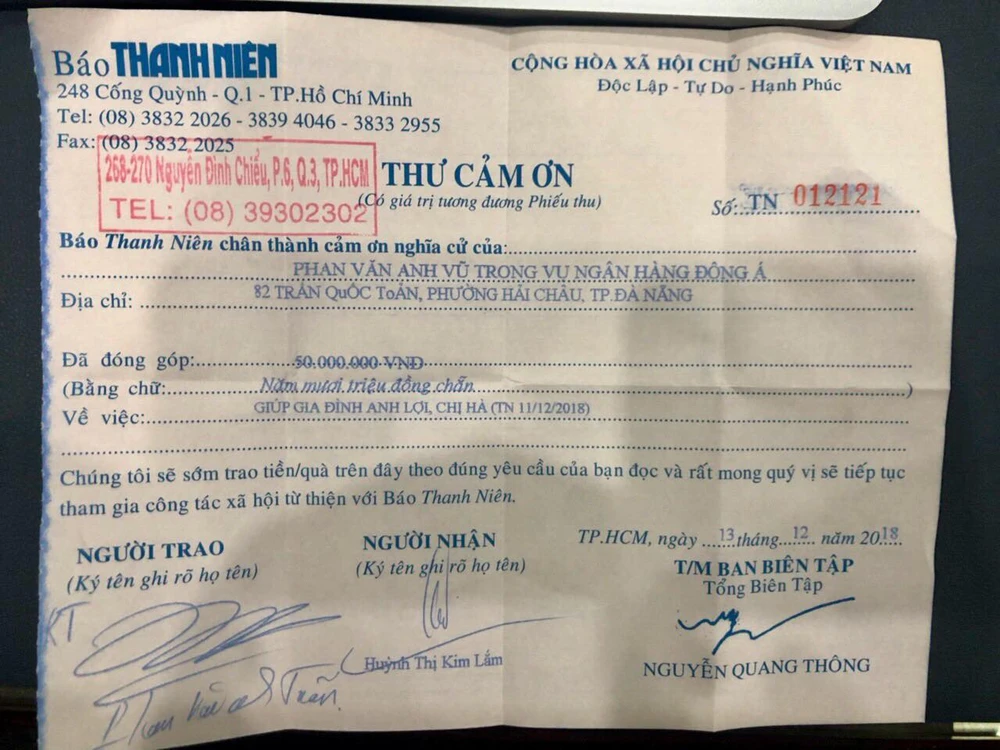 Báo THANH NIÊN
248 Cống Quỳnh - Q.1 - TP.Hồ Chí Minh
Tel: (08) 3832 2026 - 3839 4046 - 3833 2955
Fax: (08) 3832 2025
268-270 Nguyễn Đình Chiểu, P.6, Q.3, TP.HCM
TEL: (08) 39302302
CỘNG HÒA XÃ HỘI CHỦ NGHĨA VIỆT NAM
Độc Lập - Tự Do - Hạnh Phúc
THƯ CẢM ƠN
(Có giá trị tương đương Phiếu thu)
Số: TN 012121
Báo Thanh Niên chân thành cảm ơn nghĩa cử của:
PHAN VĂN ANH VŨ TRONG VỤ NGÂN HÀNG ĐÔNG Á
Địa chỉ: 82 TRẦN QuỐC ToẢN, PHƯỜNG HẢI CHÂU, TP.ĐÀ NẴNG
Đã đóng góp: 50.000.000 VNĐ
(Bằng chữ: Năm mươi triệu đồng chẵn )
Về việc: GIÚP GIA ĐÌNH ANH LỢI, CHỊ HÀ (TN 11/12/2018)
Chúng tôi sẽ sớm trao tiền/quà trên đây theo đúng yêu cầu của bạn đọc và rất mong quý vị sẽ tiếp tục
tham gia công tác xã hội từ thiện với Báo Thanh Niên.
TP.HCM, ngày 13 tháng 12 năm 2018
NGƯỜI TRAO
(Ký tên ghi rõ họ tên)
KT
NGƯỜI NHẬN
(Ký tên ghi rõ họ tên)
Huỳnh Thị Kim Lắm
T/M BAN BIÊN TẬP
Tổng Biên Tập
NGUYỄN QUANG THÔNG